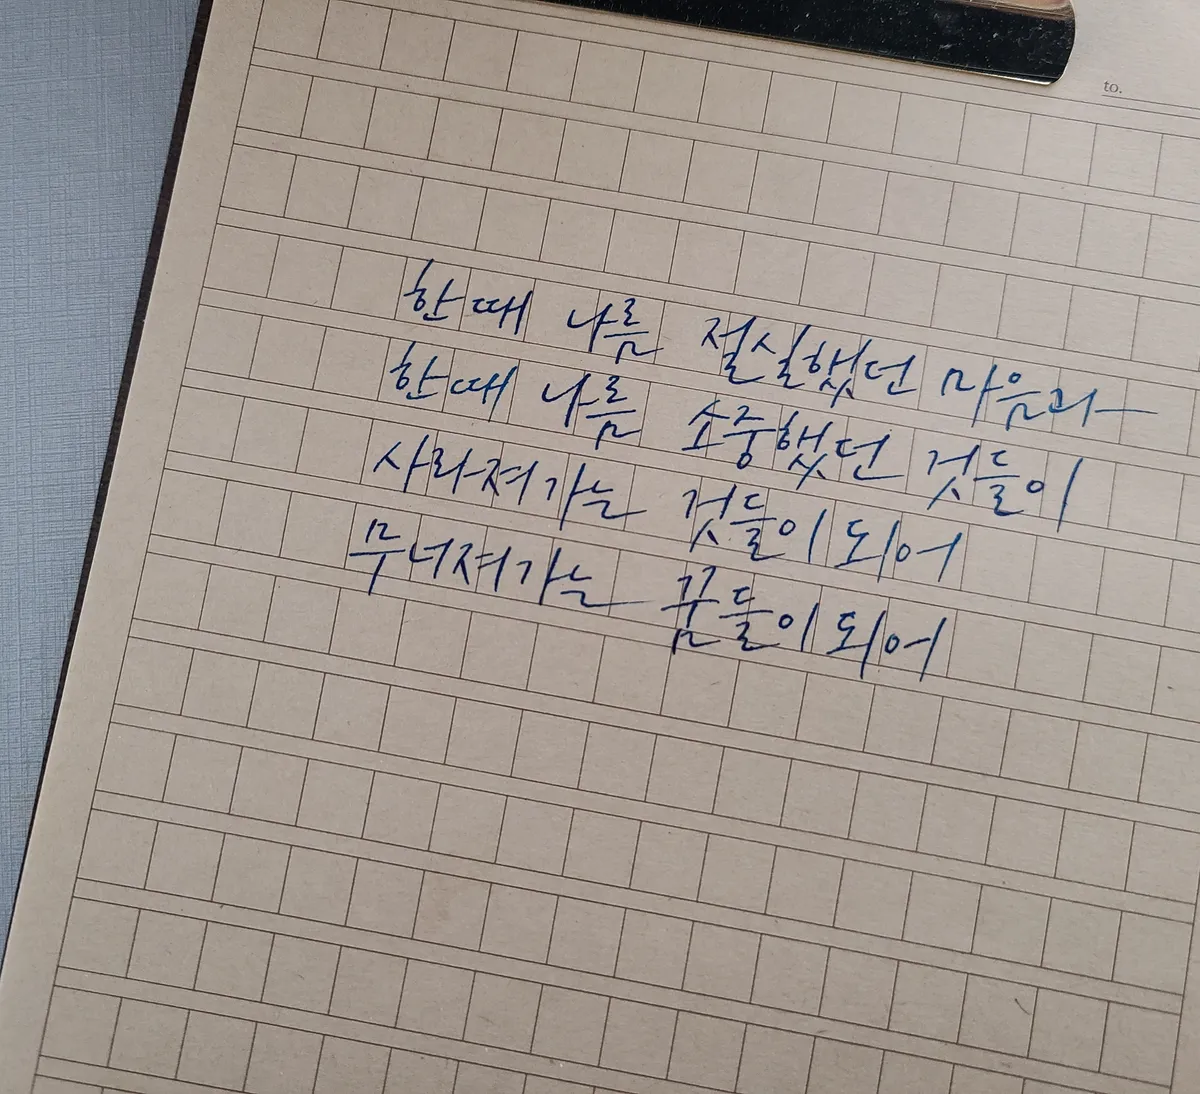 to.
한때 나름 절실했던 마음과
한때 나름 소중했던 것들이
사라져가는 것들이 되어
무너져가는 꿈들이 되어